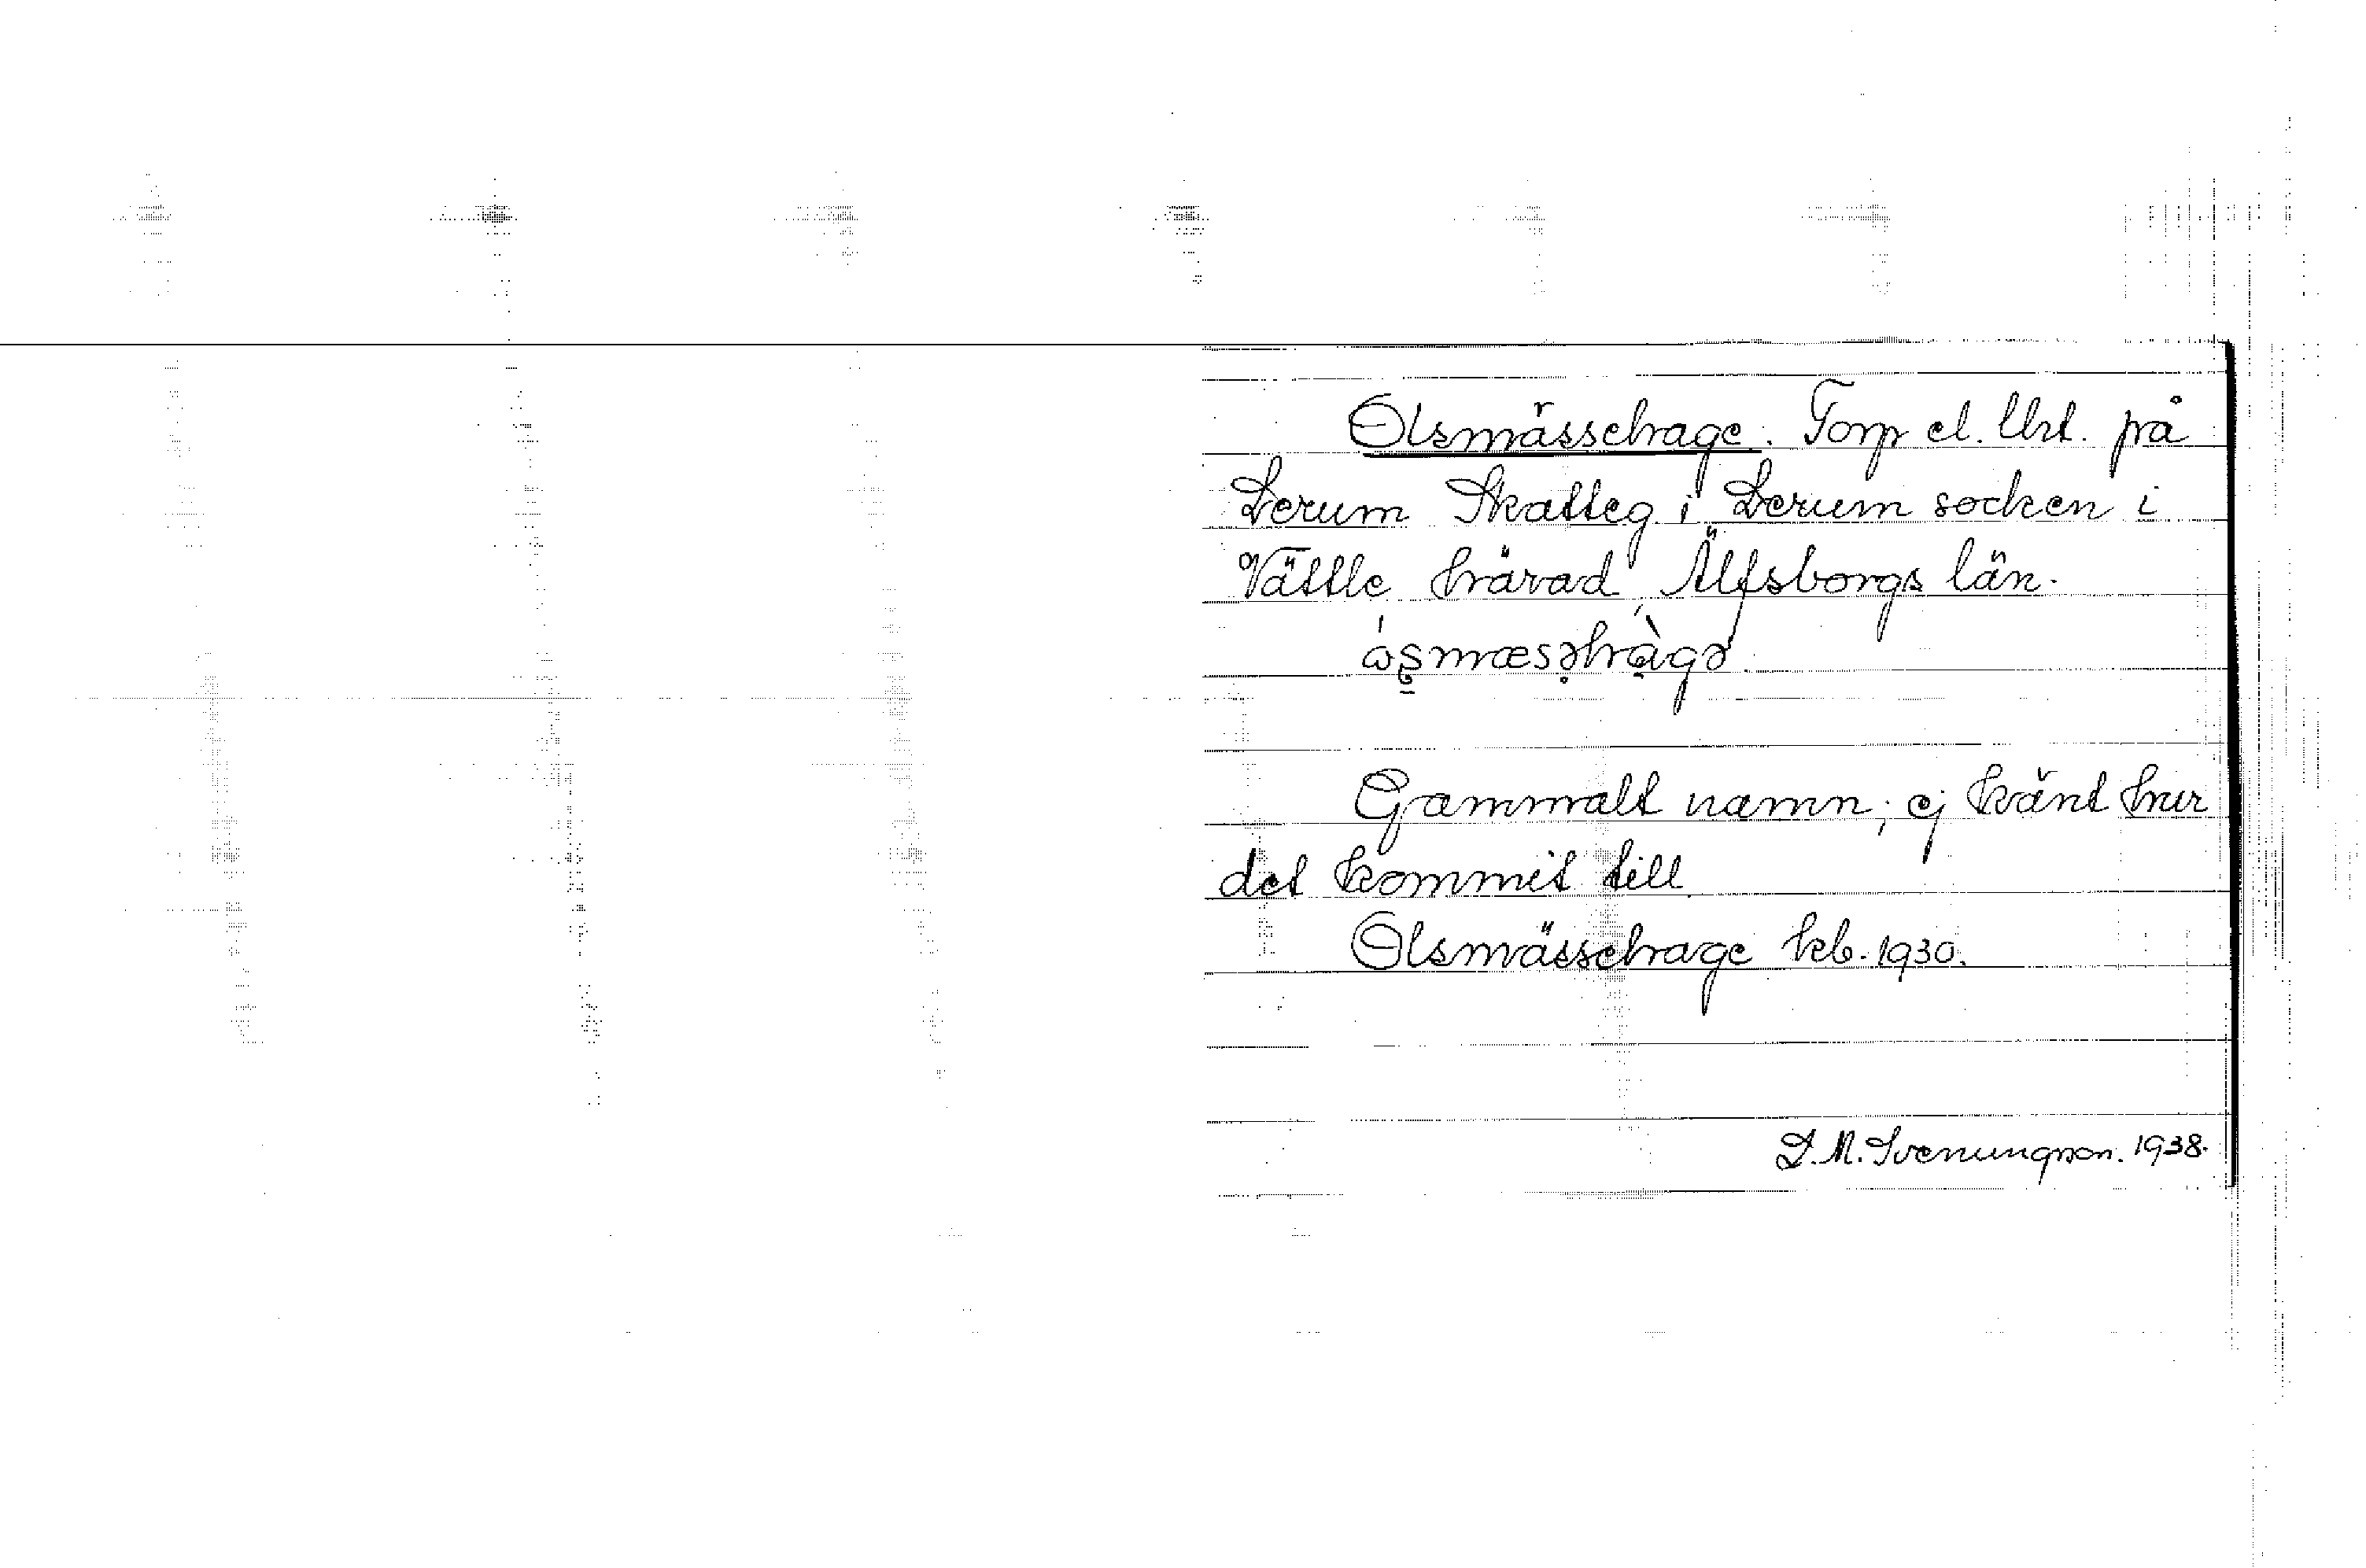 Olsmässehage. Torp el. Uht. på
Lerum Skatteg. i Lerum socken i
Vättle härad, Älfsborgs län.
Gammalt namn; ej känt hur
det kommit till
Olsmässehage kb. 1930.
D. M. Svenungson. 1938.